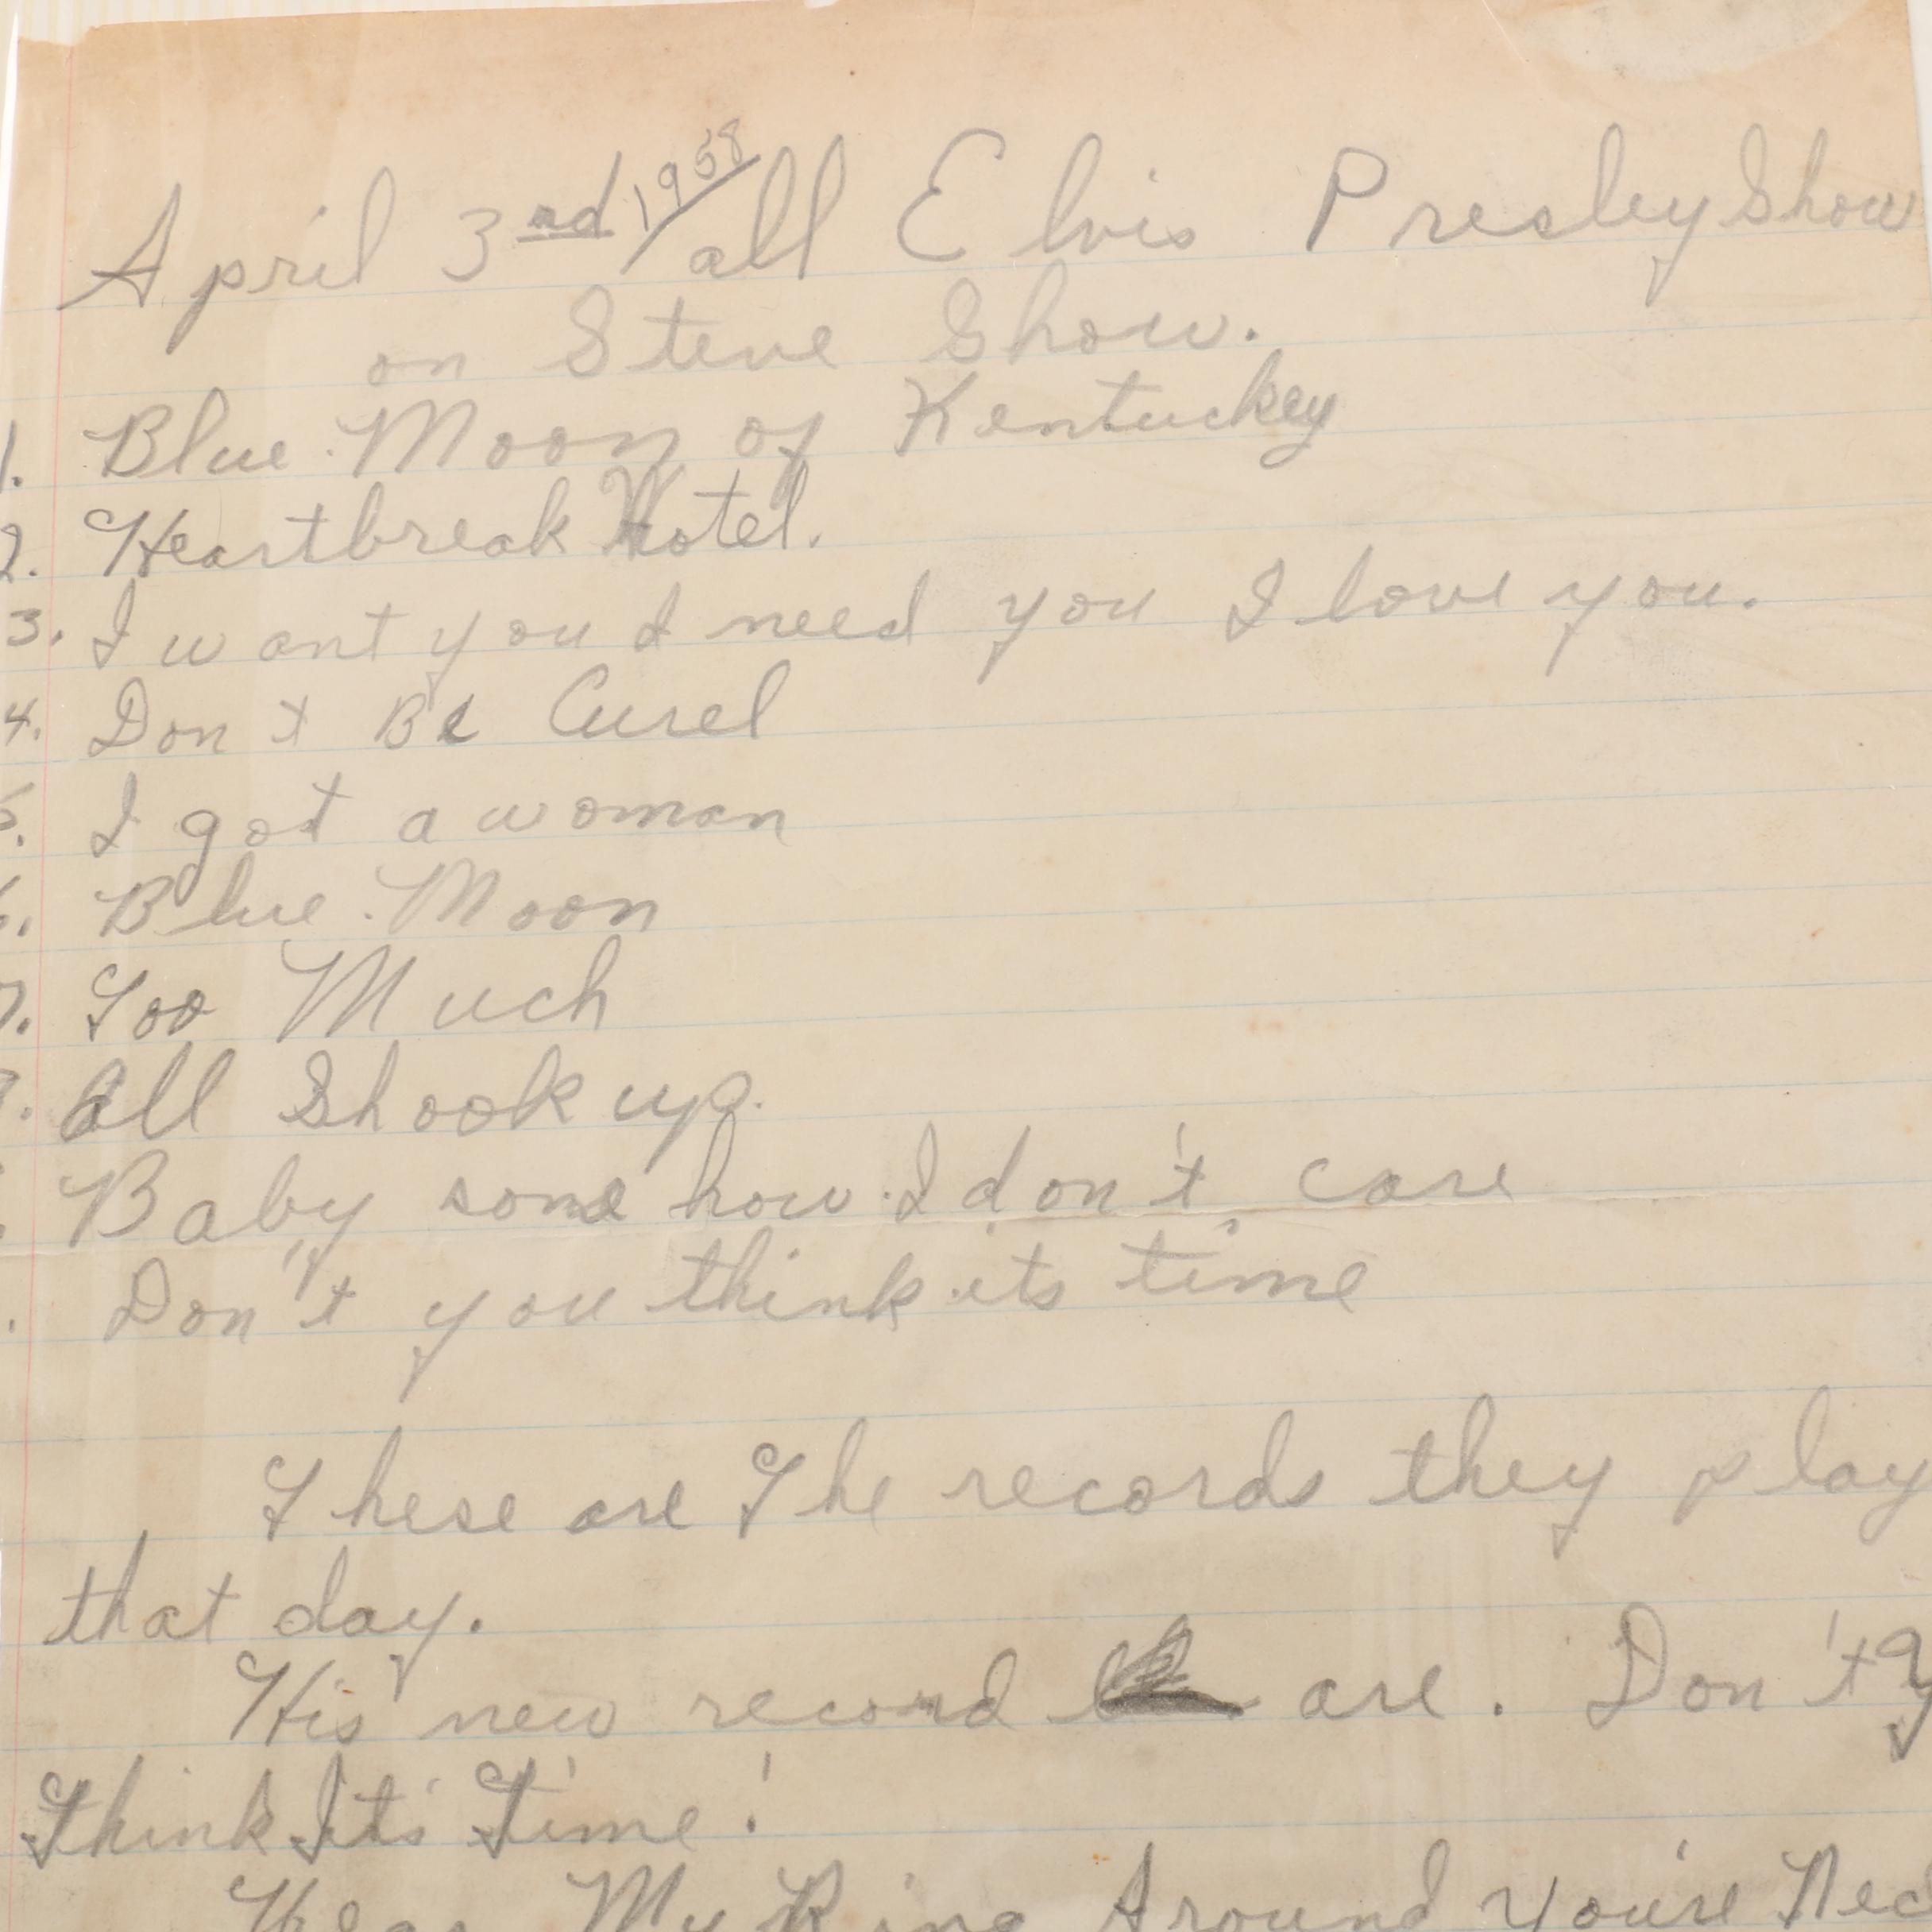 April 3nd 1958/all Elvis Presley Show
on Steve Show.
1. Blue Moon of Kentuckey
2. Heartbreak Hotel.
3. I want you I need you I love you.
4. Don t Be Curel
5. I got a woman
6. Blue Moon
7. Too Much
. All Shook up.
Baby some how I don't care
. Don't you think its time
These are The records they play
that day.
His new record are. Don't
Think It's Time!
Wear My Ring Around You're Nec